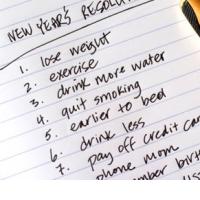 NEW YEAR'S
1. lose weight
2. exercise
3. drink more water
4. quit smoking
5. earlier to bed
6. drink less
7. pay off credit
phone mom